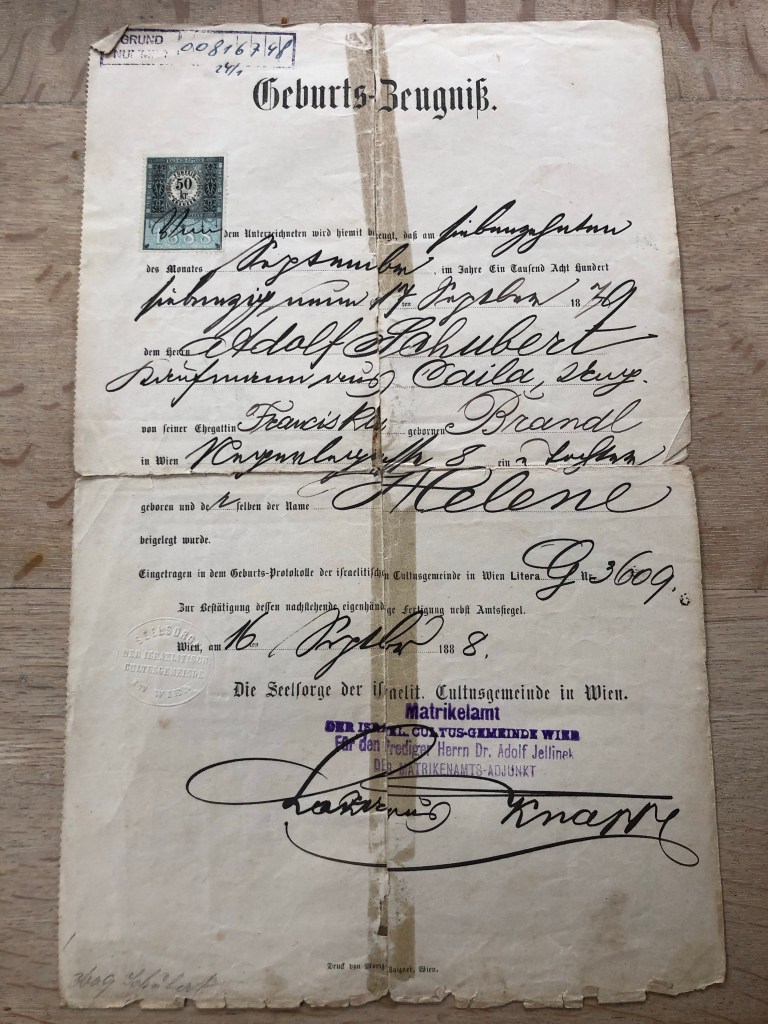 GRUND 00816748
24/1
Geburts-Zeugniß.
50
kr
1888
Von dem Unterzeichneten wird hiemit bezeugt, daß am siebenzehnten
des Monates September, im Jahre Ein Tausend Acht Hundert
siebenzig neun 17ten Septber 1879
dem Herrn Adolf Schubert
Kaufmann aus
von seiner Ehegattin Franciska gebornen Brandl
in Wien 8 eine Tochter
geboren und derselben der Name Helene
beigelegt wurde.
Eingetragen in dem Geburts-Protokolle der israelitischen Cultusgemeinde in Wien Litera G Nr 3609.
Zur Bestätigung dessen nachstehende eigenhändige Fertigung nebst Amtssiegel.
SEELSORGE
DER ISRAELITISCHEN
CULTUSGEMEINDE
IN WIEN
Wien, am 16ten Septbr 1888.
Die Seelsorge der israelit. Cultusgemeinde in Wien.
Matrikelamt
DER ISRAEL. CULTUS-GEMEINDE WIEN
Für den Prediger Herrn Dr. Adolf Jellinek
DER MATRIKENAMTS-ADJUNKT
Knapp
Druck von Moriz Knöpflmacher, Wien.
3609 Schubert